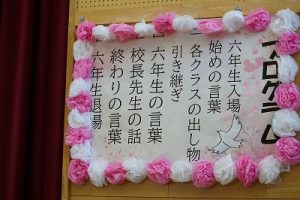 プログラム
六年生入場
始めの言葉
一 各クラスの出し物
引き継ぎ
六年生の言葉
校長先生の話
終わりの言葉
六年生退場